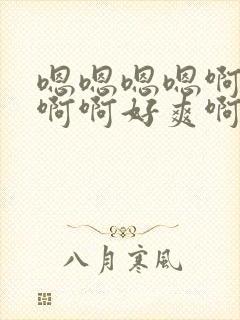 嗯嗯嗯嗯啊
啊啊好爽啊
八月寒风